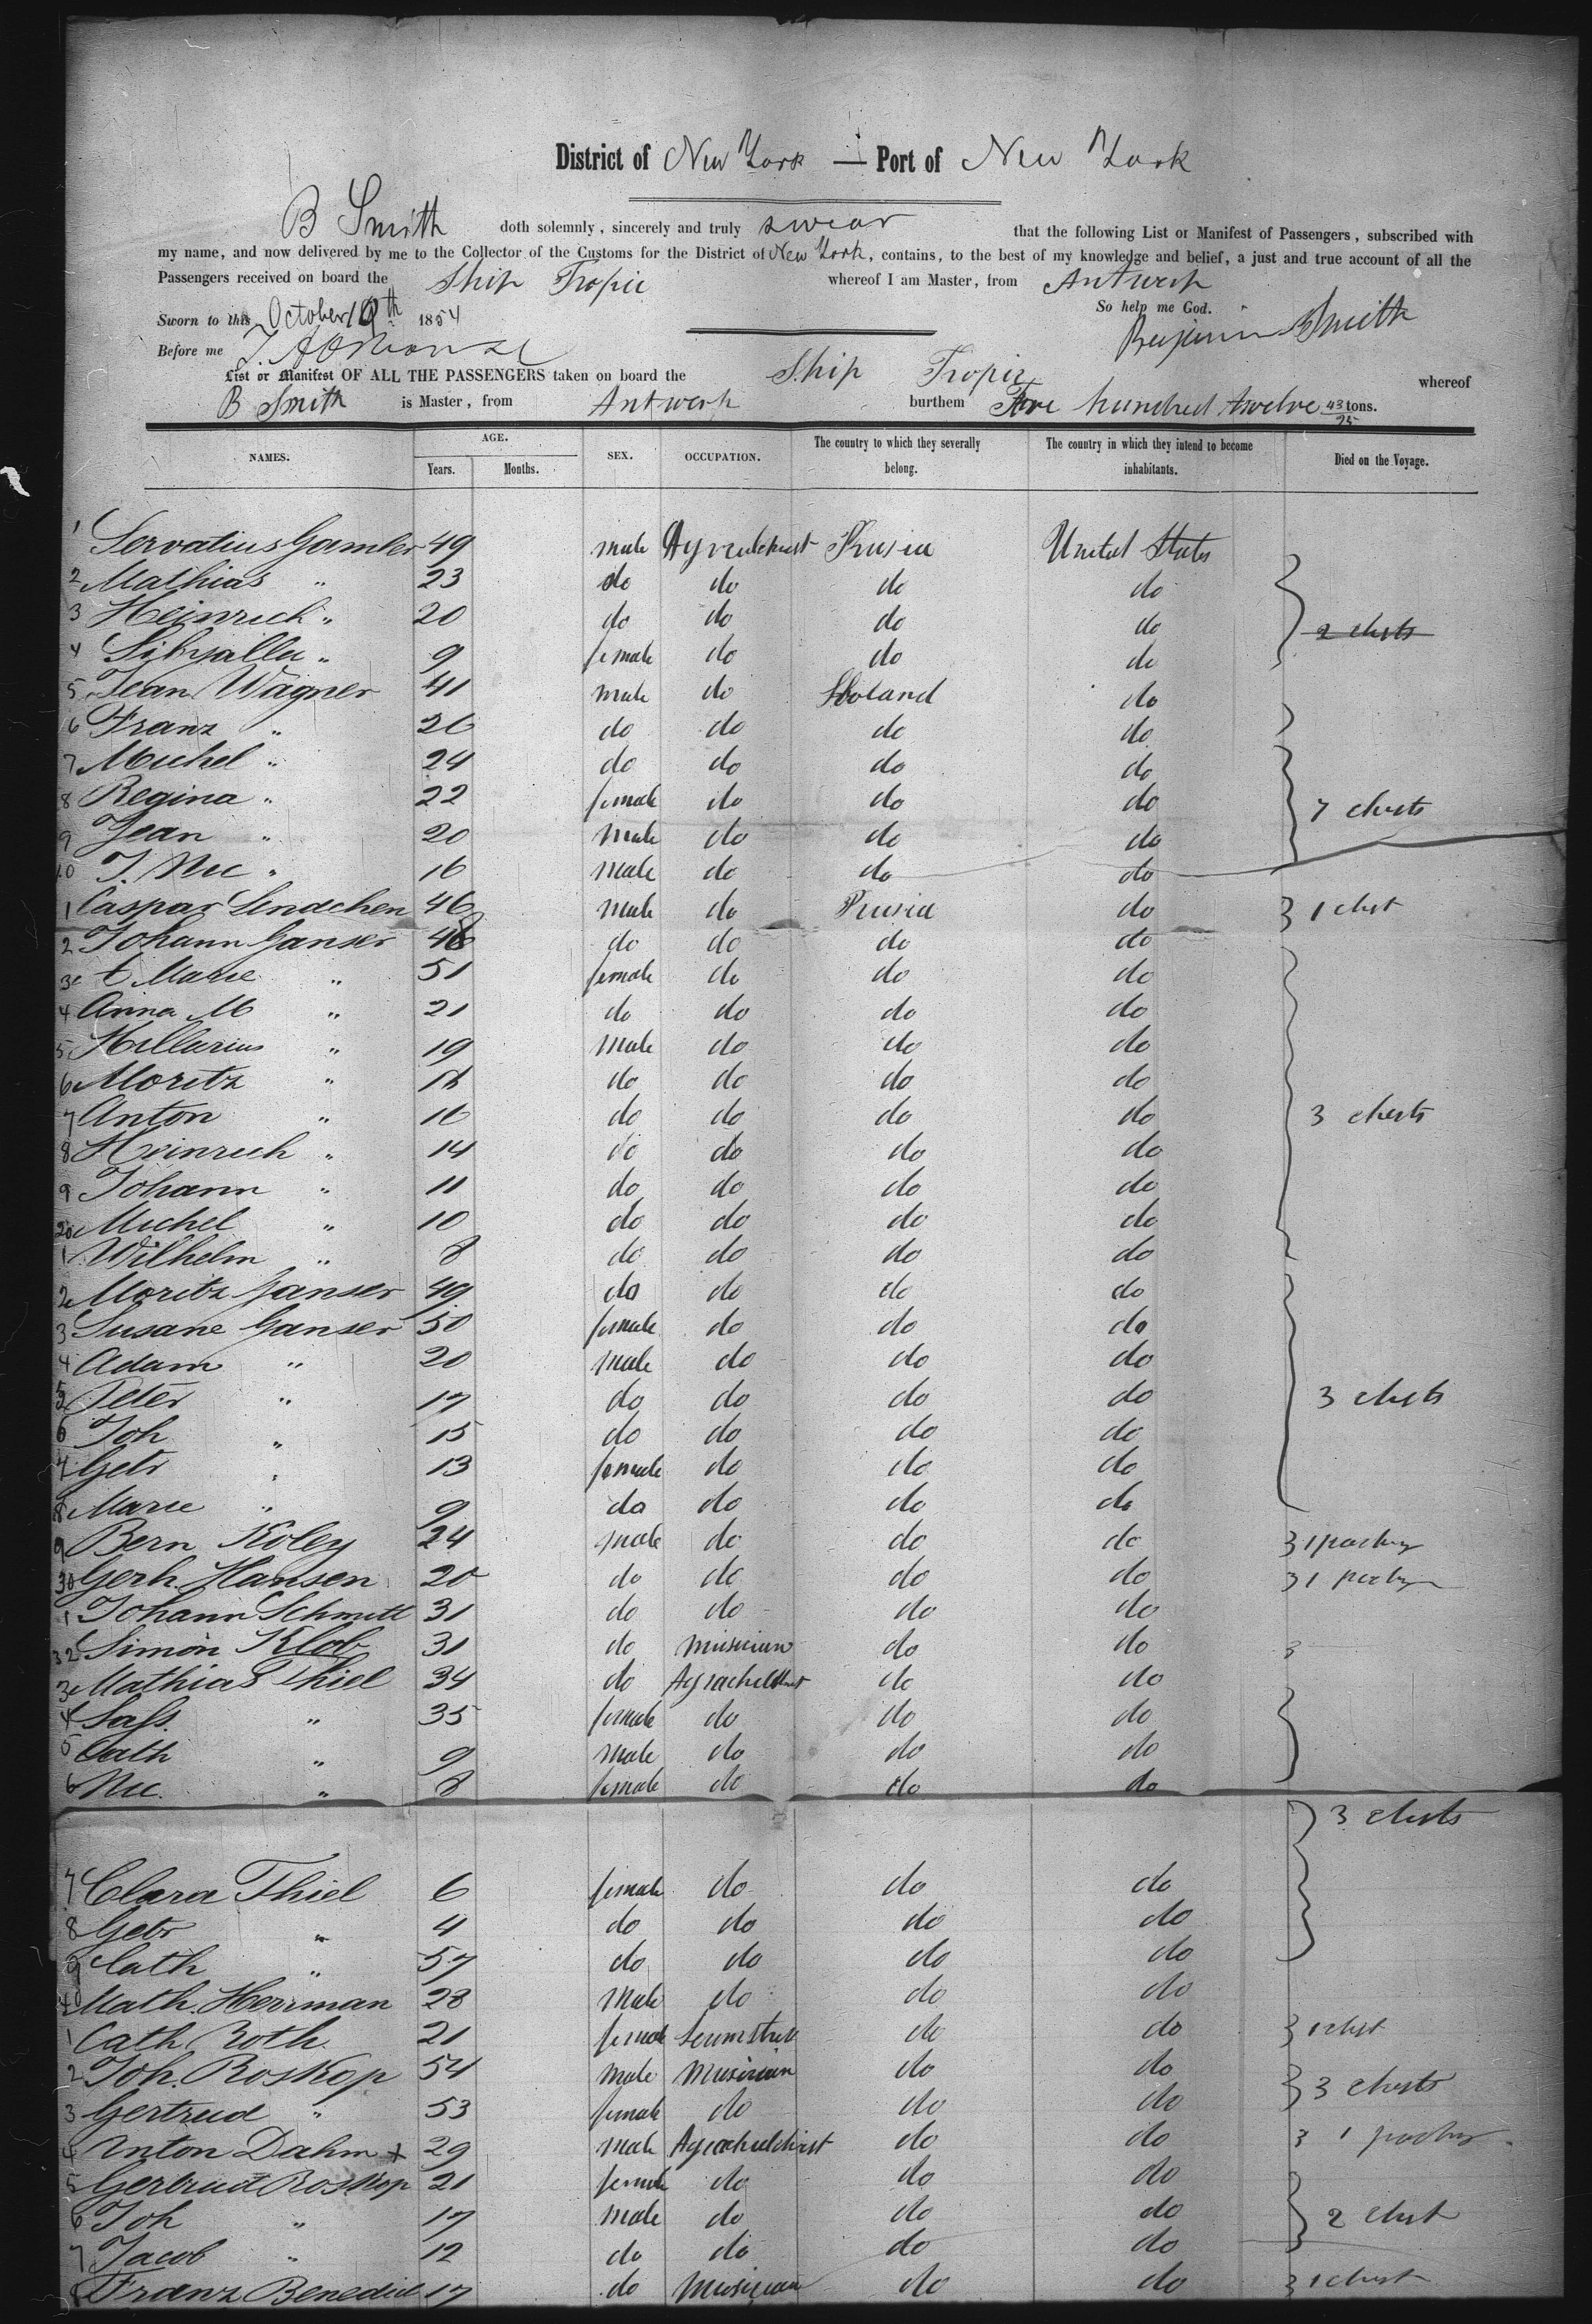 District of New York — Port of New York
B Smith doth solemnly, sincerely and truly swear that the following List or Manifest of Passengers, subscribed with
my name, and now delivered by me to the Collector of the Customs for the District of New York, contains, to the best of my knowledge and belief, a just and true account of all the
Passengers received on board the Ship Tropic whereof I am Master, from Antwerp
So help me God.
Sworn to this October 19th 1854
Benjamin Smith
Before me
List or Manifest OF ALL THE PASSENGERS taken on board the Ship Tropic whereof
B Smith is Master, from Antwerp burthem Five hundred twelve 43/95 tons.
NAMES. AGE. Years. Months. SEX. OCCUPATION. The country to which they severally belong. The country in which they intend to become inhabitants. Died on the Voyage.
1 Servatius Gamler 49 male Prusia United States
2 Mathias " 23 do do do do
3 Heinrich " 20 do do do do 2 chests
4 Sibyalla " 9 female do do do
5 Jean Wagner 41 male do Holand do
6 Franz " 26 do do do do
7 Michel " 24 do do do do
8 Regina " 22 female do do do 7 chests
9 Jean " 20 male do do do
10 J. Nic " 16 male do do do
1 Caspar Lendchen 46 male do Prusia do 1 chest
2 Johann Ganser 48 do do do do
3 Marie " 51 female do do do
4 Anna M " 21 do do do do
5 Hillarius " 19 male do do do
6 Moritz " 18 do do do do
7 Anton " 16 do do do do 3 chests
8 Heinrich " 14 do do do do
9 Johann " 11 do do do do
20 Michel " 10 do do do do
1 Wilhelm " 8 do do do do
2 Moritz Ganser 49 do do do do
3 Susane Ganser 50 female do do do
4 Adam " 20 male do do do
5 Peter " 17 do do do do 3 chests
6 Joh " 15 do do do do
7 Getr " 13 female do do do
8 Marie " 9 do do do do
9 Bern Koley 24 male do do do 1
30 Gerh. Hansen 20 do do do do 1
1 Johann Schmitt 31 do do do do
32 Simon Klob 31 do musician do do
3 Mathias Thiel 34 do do do
4 " 35 female do do do
5 Cath " 9 male do do do
6 Nic. " 8 female do do do
3 chests
7 Clara Thiel 6 female do do do
8 Getr " 4 do do do do
9 Cath " 57 do do do do
40 Math. Herrman 28 male do do do
1 Cath Roth 21 female do do 1 chest
2 Joh. Roskop 54 male musician do do 3 chests
3 Gertrud " 53 female do do do
4 Anton Dahm + 29 male do do 1
5 Gertrud Roskop 21 female do do do
6 Joh " 17 male do do do 2 chest
7 Jacob " 12 do do do do
8 Franz Benedict 17 do musician do do 1 chest